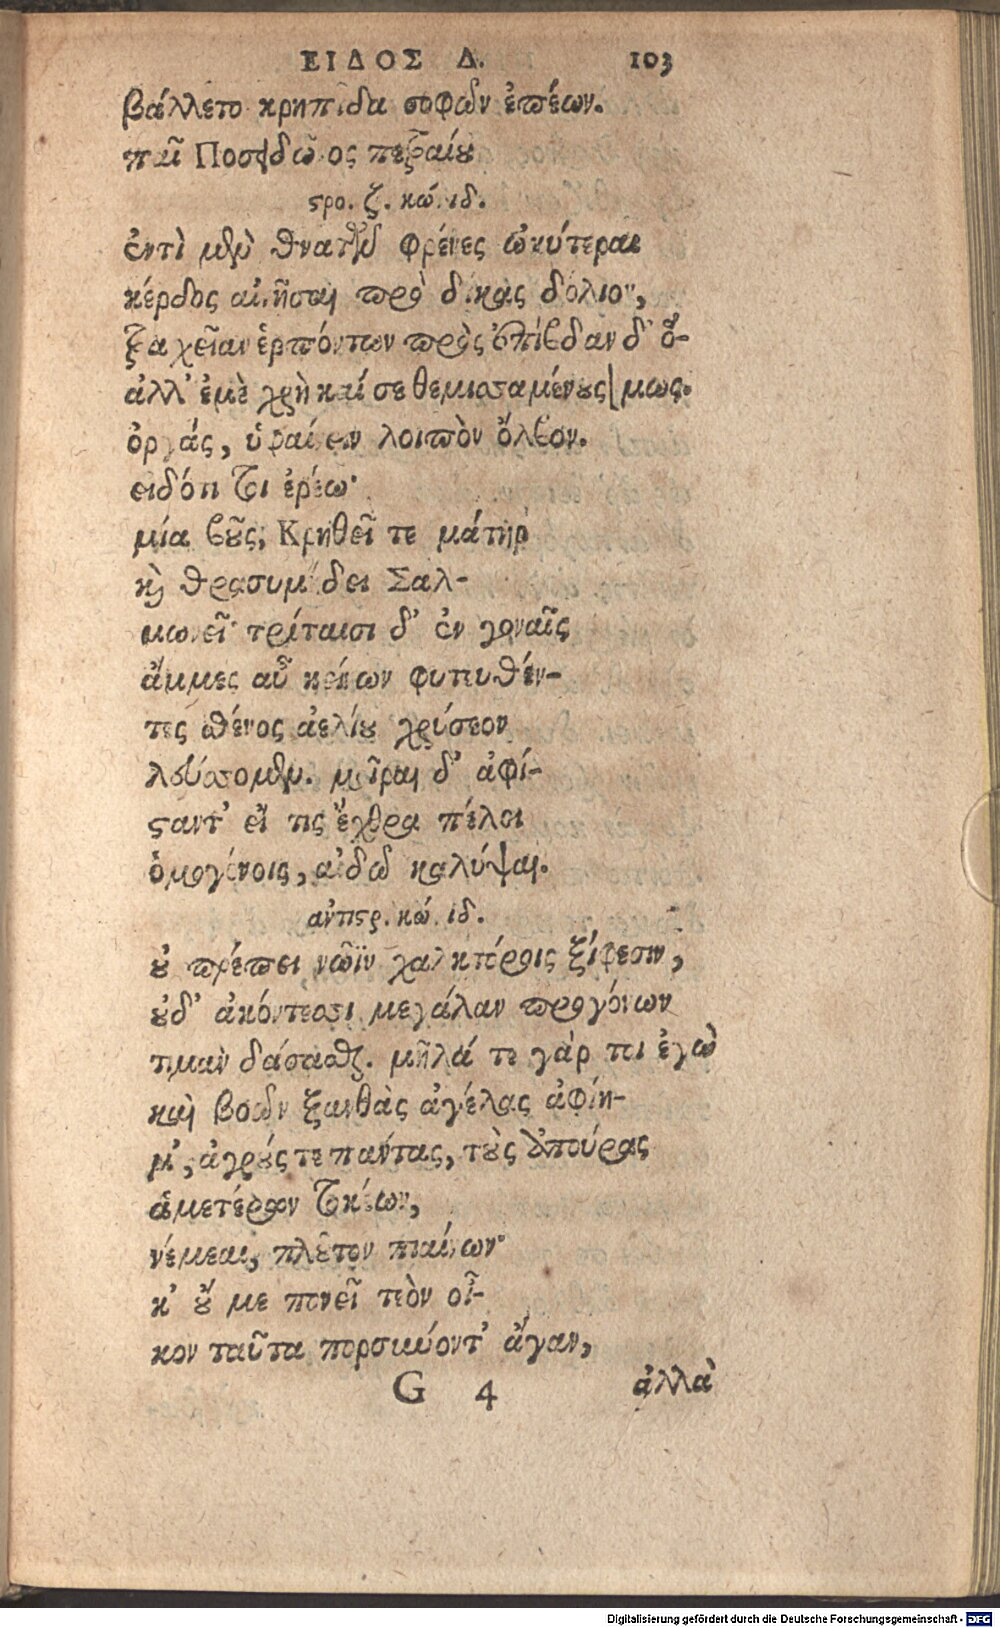 ΕΙΔΟΣ Δ. 103
βάλλετο κρηπῖδα σοφῶν ἐπέων.
παῖ Ποσειδῶνος πετραίου
στρο. ζ. κώ. ιδ.
ἐντὶ μὲν θνατῶν φρένες ὠκύτεραι
κέρδος αἰνῆσαι πρὸ δίκας δόλιον,
τραχεῖαν ἑρπόντων πρὸς ἐπίβδαν δ' ὅ-
ἀλλ' ἐμὲ χρὴ καί σε θεμισσαμένους [μως.
ὀργάς, ὑφαίνειν λοιπὸν ὄλβον.
εἰδότι τοι ἐρέω·
μία βοῦς, Κρηθεῖ τε μάτηρ
καὶ θρασυμήδει Σαλ-
μωνεῖ· τρίταισι δ' ἐν γοναῖς
ἄμμες αὖ κείνων φυτευθέν-
τες σθένος ἀελίου χρύσεον
λεύσσομεν. μοῖραι δ' ἀφί-
σταντ' εἴ τις ἔχθρα πέλοι
ὁμογόνοις, αἰδῶ καλύψαι.
ἀντιστρ. κώ. ιδ.
οὐ πρέπει νῶϊν χαλκτόροις ξίφεσιν,
οὐδ' ἀκόντεσσι μεγάλαν προγόνων
τιμὰν δάσασθαι. μῆλά τε γάρ τοι ἐγὼ
καὶ βοῶν ξανθὰς ἀγέλας ἀφίη-
μ', ἀγρούς τε πάντας, τοὺς ἀπούρας
ἁμετέρων τοκέων,
νέμεαι, πλοῦτον πιαίνων·
κ' οὔ με πονεῖ τεὸν οἶ-
κον ταῦτα πορσύνοντ' ἄγαν,
G 4 ἀλλὰ
Digitalisierung gefördert durch die Deutsche Forschungsgemeinschaft - DFG